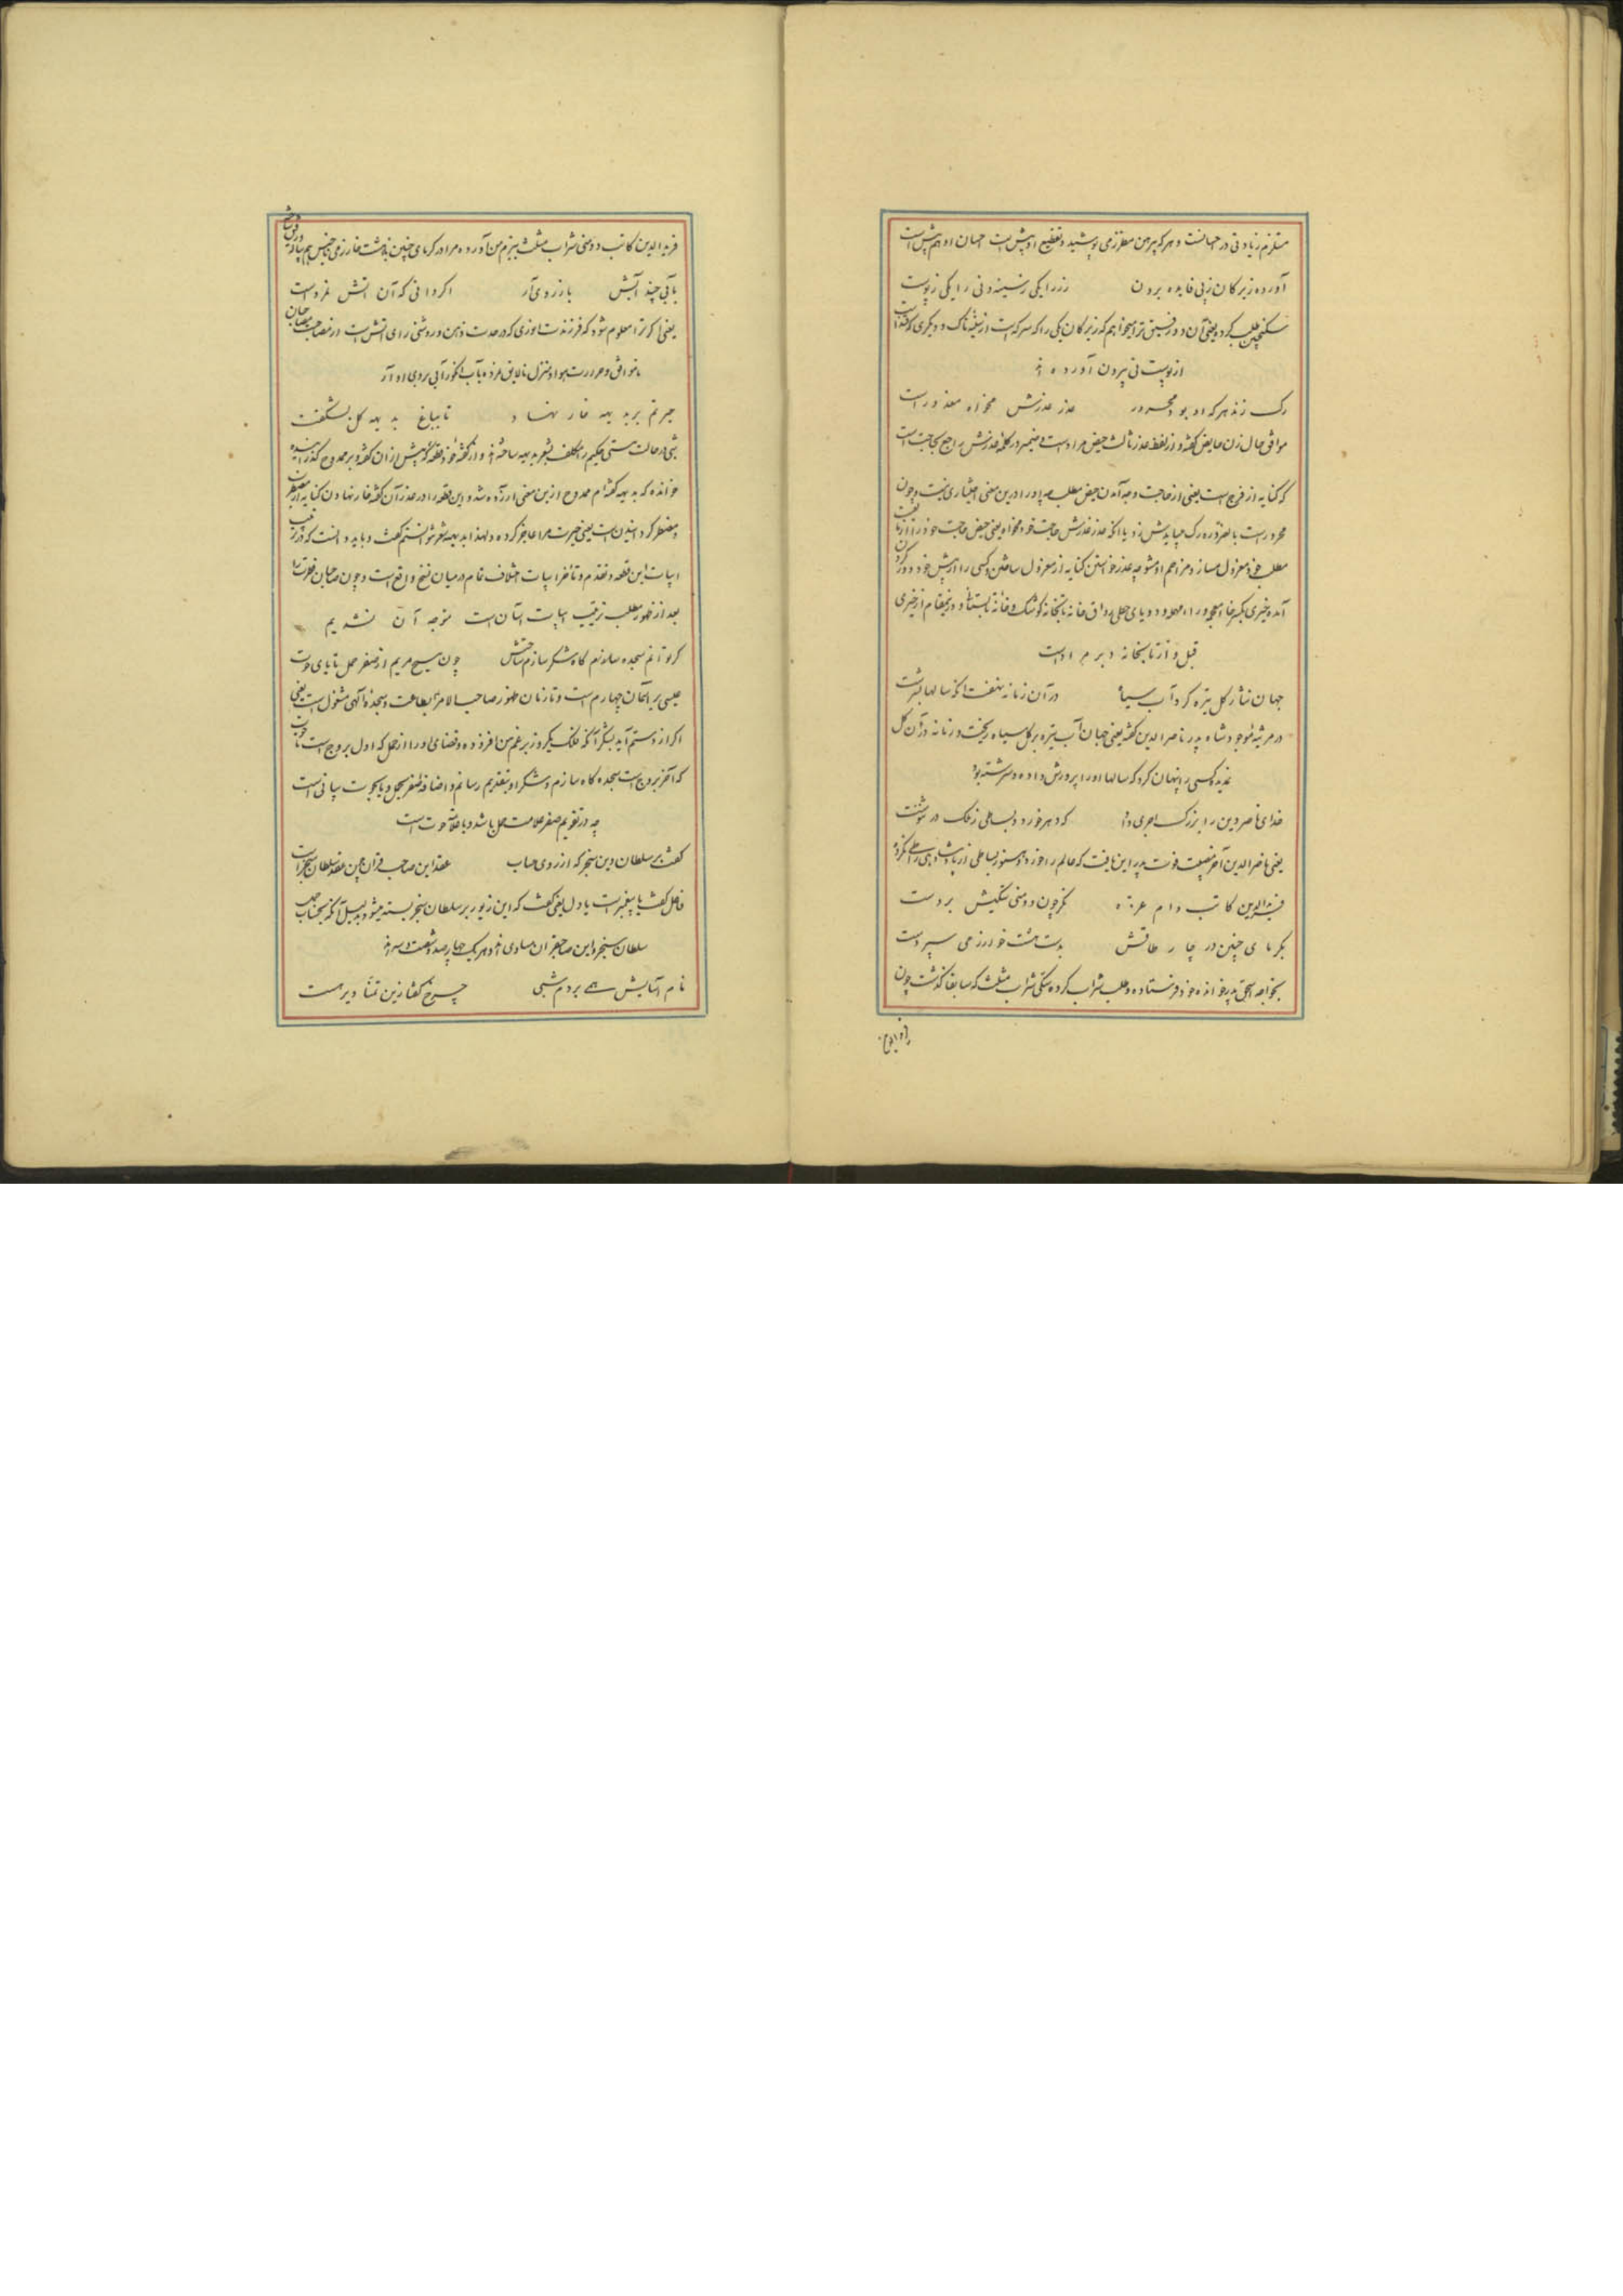 مستلزم زیادتی در جهانست و هر که پیرهن مطرزمی پوشید و تقطیع او پیش است جهان او هم پیش است
آورده زیرکان زپی فایده برون رز را یکی ز سینه و نی را یکی ز پوست
سکنجبین طلب کرده یعنی آن دو رفیق ترا میخواهم که زیرکان یکی را که سرکه است از سینه تاک و دیگری که قند است
از پوست نی بیرون آورده اند
رک زند هر که او بود محرور عذر عذرش مخواه معذور است
موافق حال زن حایض گفته و از لفظ عذر ثالث حیض مراد است و ضمیر در کلمه عذرش راجع بحاجت است
که کنایه از فرج است یعنی از حاجت وجه آمدن حیض مطلب چه او را درین معنی اختیاری نیست و چون
محرور است بالضروره رک میبایدش زد یا آنکه عذر عذرش حاجت خود مخواه یعنی حیض حاجت خود را از
مطلب خود معزول مساز و مزاحم او مشو چه عذر خواستن کنایه از معزول ساختن و کسی را از پیش خود دور کردن
آمده
قبل و از تابخانه دبر مراد است
جهان نثار کل تیره کرد آب سیاه در آن زمانه نهفت آنکه سالها بسرشت
در مرثیه مودود شاه پدر ناصر الدین گفته یعنی جهان آب تیره بر کل سیاه ریخت و زمانه در آن کل
تیره کسی را پنهان کرد که سالها او را پرورش داده و سرشته بود
خدای ناصر دین را بزرگ اجری داد که دهر خورد و بساطی ز ملک در ننوشت
یعنی ناصر الدین آخر مصیبت فوت پدر این یافت که عالم را خورد و هنوز بساطی از پادشاهی را طی نکرده
فرید الدین کاتب دام عزه مگر چون دو منی سنگیش بردست
بگرمای چنین در چار طاقش بدست هشت خوارزمی سپردست
بخواجه اسحق پدرخوانده خود فرستاده و طلب شراب کرده سنگی شراب مثلث که سابقا گذشت چون
فرید الدین کاتب دو منی شراب مثلث ببزم من آورده مرا در گرمای چنین بدشت خوارزمی
بآبی چند آتش باز زوی آر اگر دانی که آن آتش نمردست
یعنی اگر ترا معلوم شود که فرزندت انوری که در حدت ذهن و روشنی رای آتش است از مصاحبت مصاحبان
ناموافق و حرارت هوا و منزل نالایق نمرده بآب انگور آبی بروی او آر
حیرتم بر بدیهه خار نهاد تا بباغ بدیهه گل بشکفت
شبی در حالت مستی حکیم را تکلیف شعر بدیهه ساخته اند و او گفته خود قطعه که پیش از آن گفته و بر ممدوح گذرانیده
خوانده که بدیهه گفته ام ممدوح ازین معنی آزرده شده و این قطعه را در عذر آن گفته خار نهادن کنایه از مضطرب
و مضطر گردانیدن است یعنی حیرت مرا عاجز کرده و لهذا بدیهه شعر نتوانستم گفت و باید دانست که در ترتیب
ابیات این قطعه و تقدم و تأخر ابیات اختلاف تمام در میان نسخ واقع است و چون صاحبان فطرت را
بعد از ظهور مطلب ترتیب ابیات آسان است متوجه آن نشدیم
گر توانم سجده گاه شکر سازم ساحتش چون مسیح مریم از صفر حمل تا پای حوت
عیسی بر آسمان چهارم است و تا زمان ظهور صاحب الامر بطاعت و سجده آلهی مشغول است یعنی
اگر از دستم آید بشکر آنکه فلک یکروز بر عمر من افزوده و قضای او را از حمل که اول بروج است تا حوت
که آخر بروج است سجده گاه سازم و شکر او بتقدیم رسانم و اضافه صفر بحمل و پا بحوت بیانی است
چه در تقویم صفر علامت حمل باشد و یا علامت حوت است
گفت بر سلطان دین سنجر که از روی حساب عقد این صاحب قران چون عقد سلطان سنجر است
فاعل گفت یا پیغمبر است یا دل یعنی گفت که این زیور بر سلطان سنجر بسته میشود بدلیل آنکه بحساب جمل
سلطان سنجر و این صاحبقران مساوی اند و هر یک چهارصد و شصت و سه اند
نام آسایش همی بردم شبی چرخ گفتا زین تمنا دیرهست